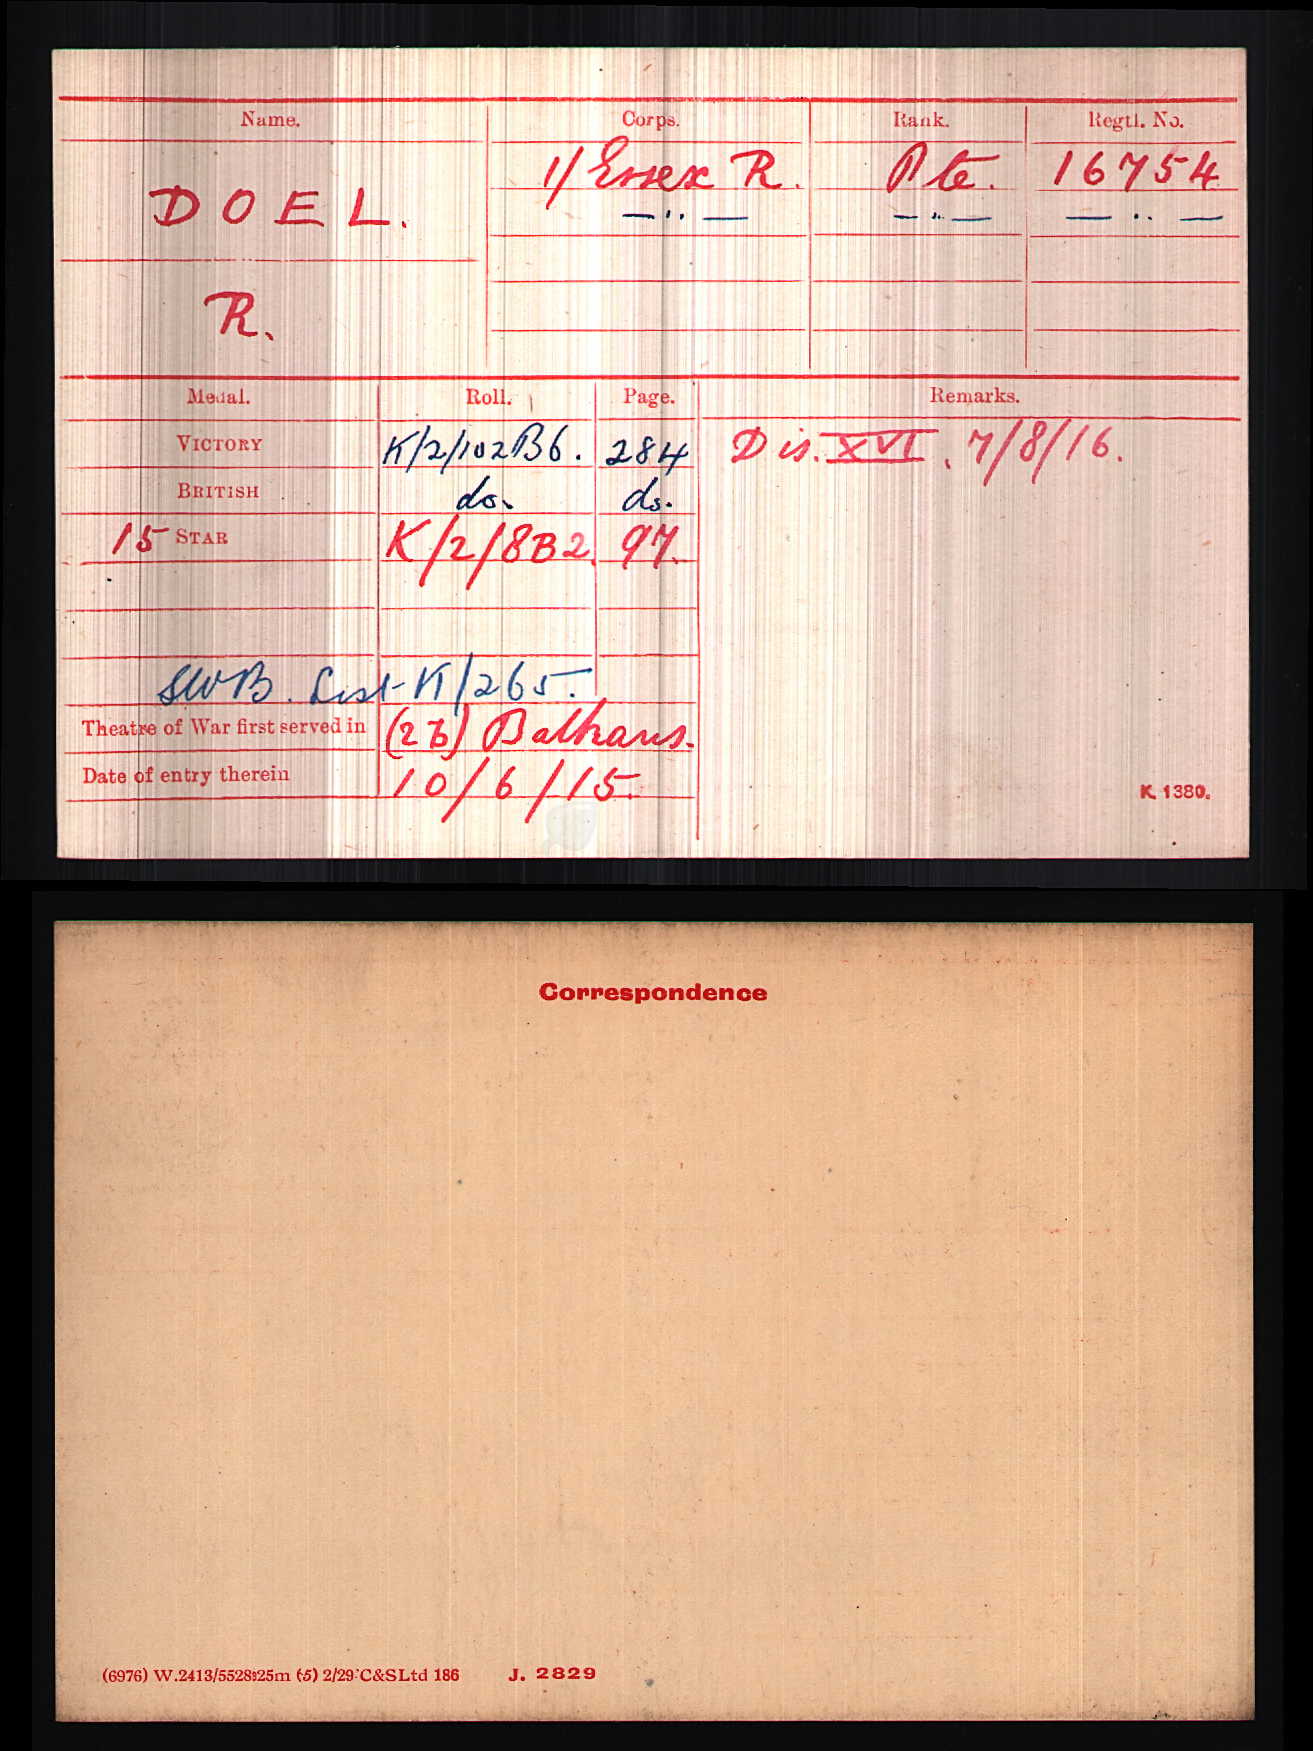 Name. Corps. Rank. Regtl. No.
DOEL. 1/Essex R. Pte. 16754
— " — — " — — " —
R.
Medal. Roll. Page. Remarks.
VICTORY K/2/102B6. 284 Dis. XVI. 7/8/16.
BRITISH do. do.
15 STAR K/2/8B2. 97.
SWB. List K/265.
Theatre of War first served in (2b) Balkans.
Date of entry therein 10/6/15.
K. 1380.
Correspondence
(6976) W.2413/5528 25m (5) 2/29 C&SLtd 186 J. 2829